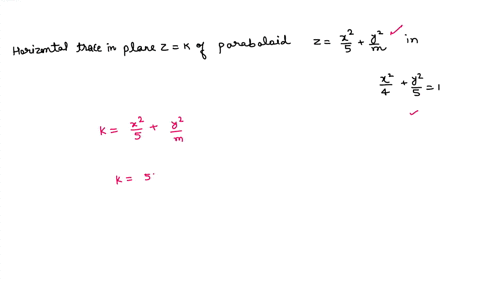 Horizontal trace in plane z = k of paraboloid z = x²/5 + y²/m in
x²/4 + y²/5 = 1
k = x²/5 + y²/m
k = 5